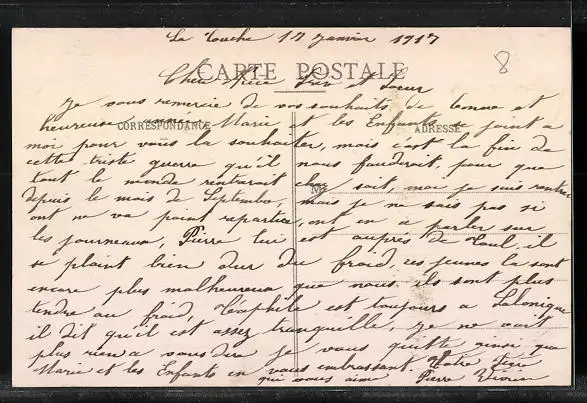 La Touche 17 Janvier 1917
CARTE POSTALE
Cher Frère et Soeur
Je vous remercie de vos souhaits de bonne et
heureuse année Marie et les Enfants se joint a
CORRESPONDANCE
ADRESSE
moi pour vous la souhaiter, mais c'est la fin de
cette triste guerre qu'il nous faudrait, pour que
tout le monde rentrerait chez soit, moi je suis rentré
M
depuis le mois de Septembre, mais je ne sais pas si
ont ne va point repartire, ont en a parler sur
les journeaux, Pierre lui est auprès de Toul, il
se plaint bien dur du froid, ces jeunes la sont
encore plus malheureux que nous, ils sont plus
tendre au froid, Théophile est toujours a Salonique
il dit qu'il est assez tranquille, je ne voit
plus rien a vous dire je vous quitte ainsi que
Marie et les Enfants en vous embrassant. Votre frère
qui vous aime Pierre
8